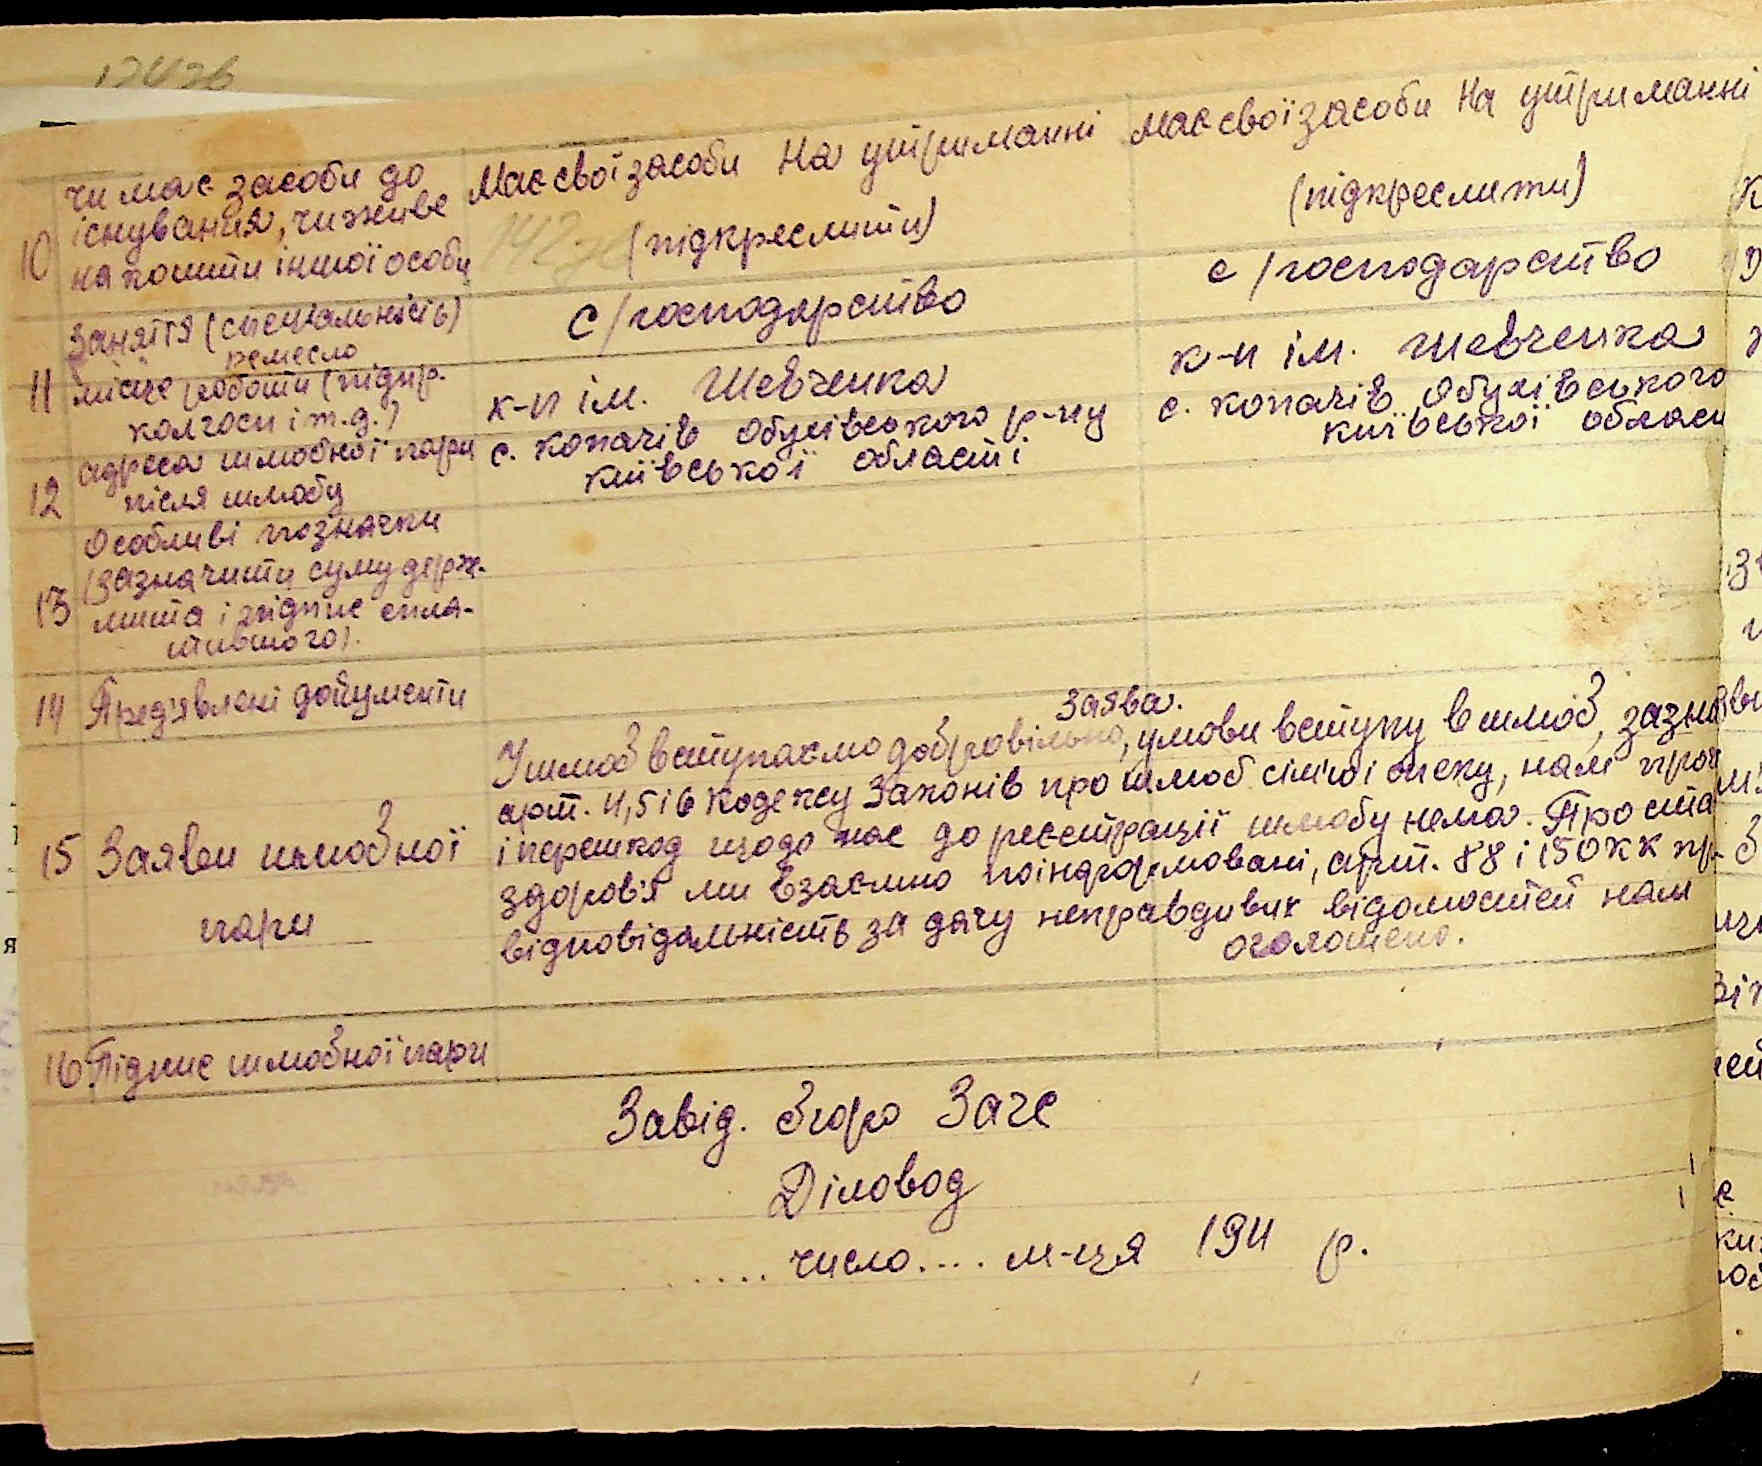 чи має засоби до Має свої засоби На утриманні Має свої засоби На утриманні
10 існування, чи живе (підкреслити) (підкреслити)
на кошти іншої особи
Заняття (спеціальність) с/господарство с/господарство
ремесло
11 місце роботи (підпр. к-п ім. Шевченка к-п ім. Шевченка
колгосп і т.д.)
12 адреса шлюбної пари с. Копачів Обухівського р-ну с. Копачів Обухівського
після шлюбу Київської області Київської област
Особливі позначки
(зазначити суму держ.
13 мита і підпис спла-
тившого).
14 Пред'явлені документи
Заява.
У шлюб вступаємо добровільно, умови вступу в шлюб, зазна
арт. 4, 5 і 6 Кодексу Законів про шлюб сім'ю і опеку, нам проч
15 Заяви шлюбної і перешкод щодо нас до реєстрації шлюбу нема. Про ста
здоров'я ми взаємно поінформовані, арт. 88 і 150 КК пр-
пари відповідальність за дачу неправдивих відомостей нам
оголошено.
16 Підпис шлюбної пари
Завід. бюро Загс
Діловод
..... число .... м-ця 194 р.